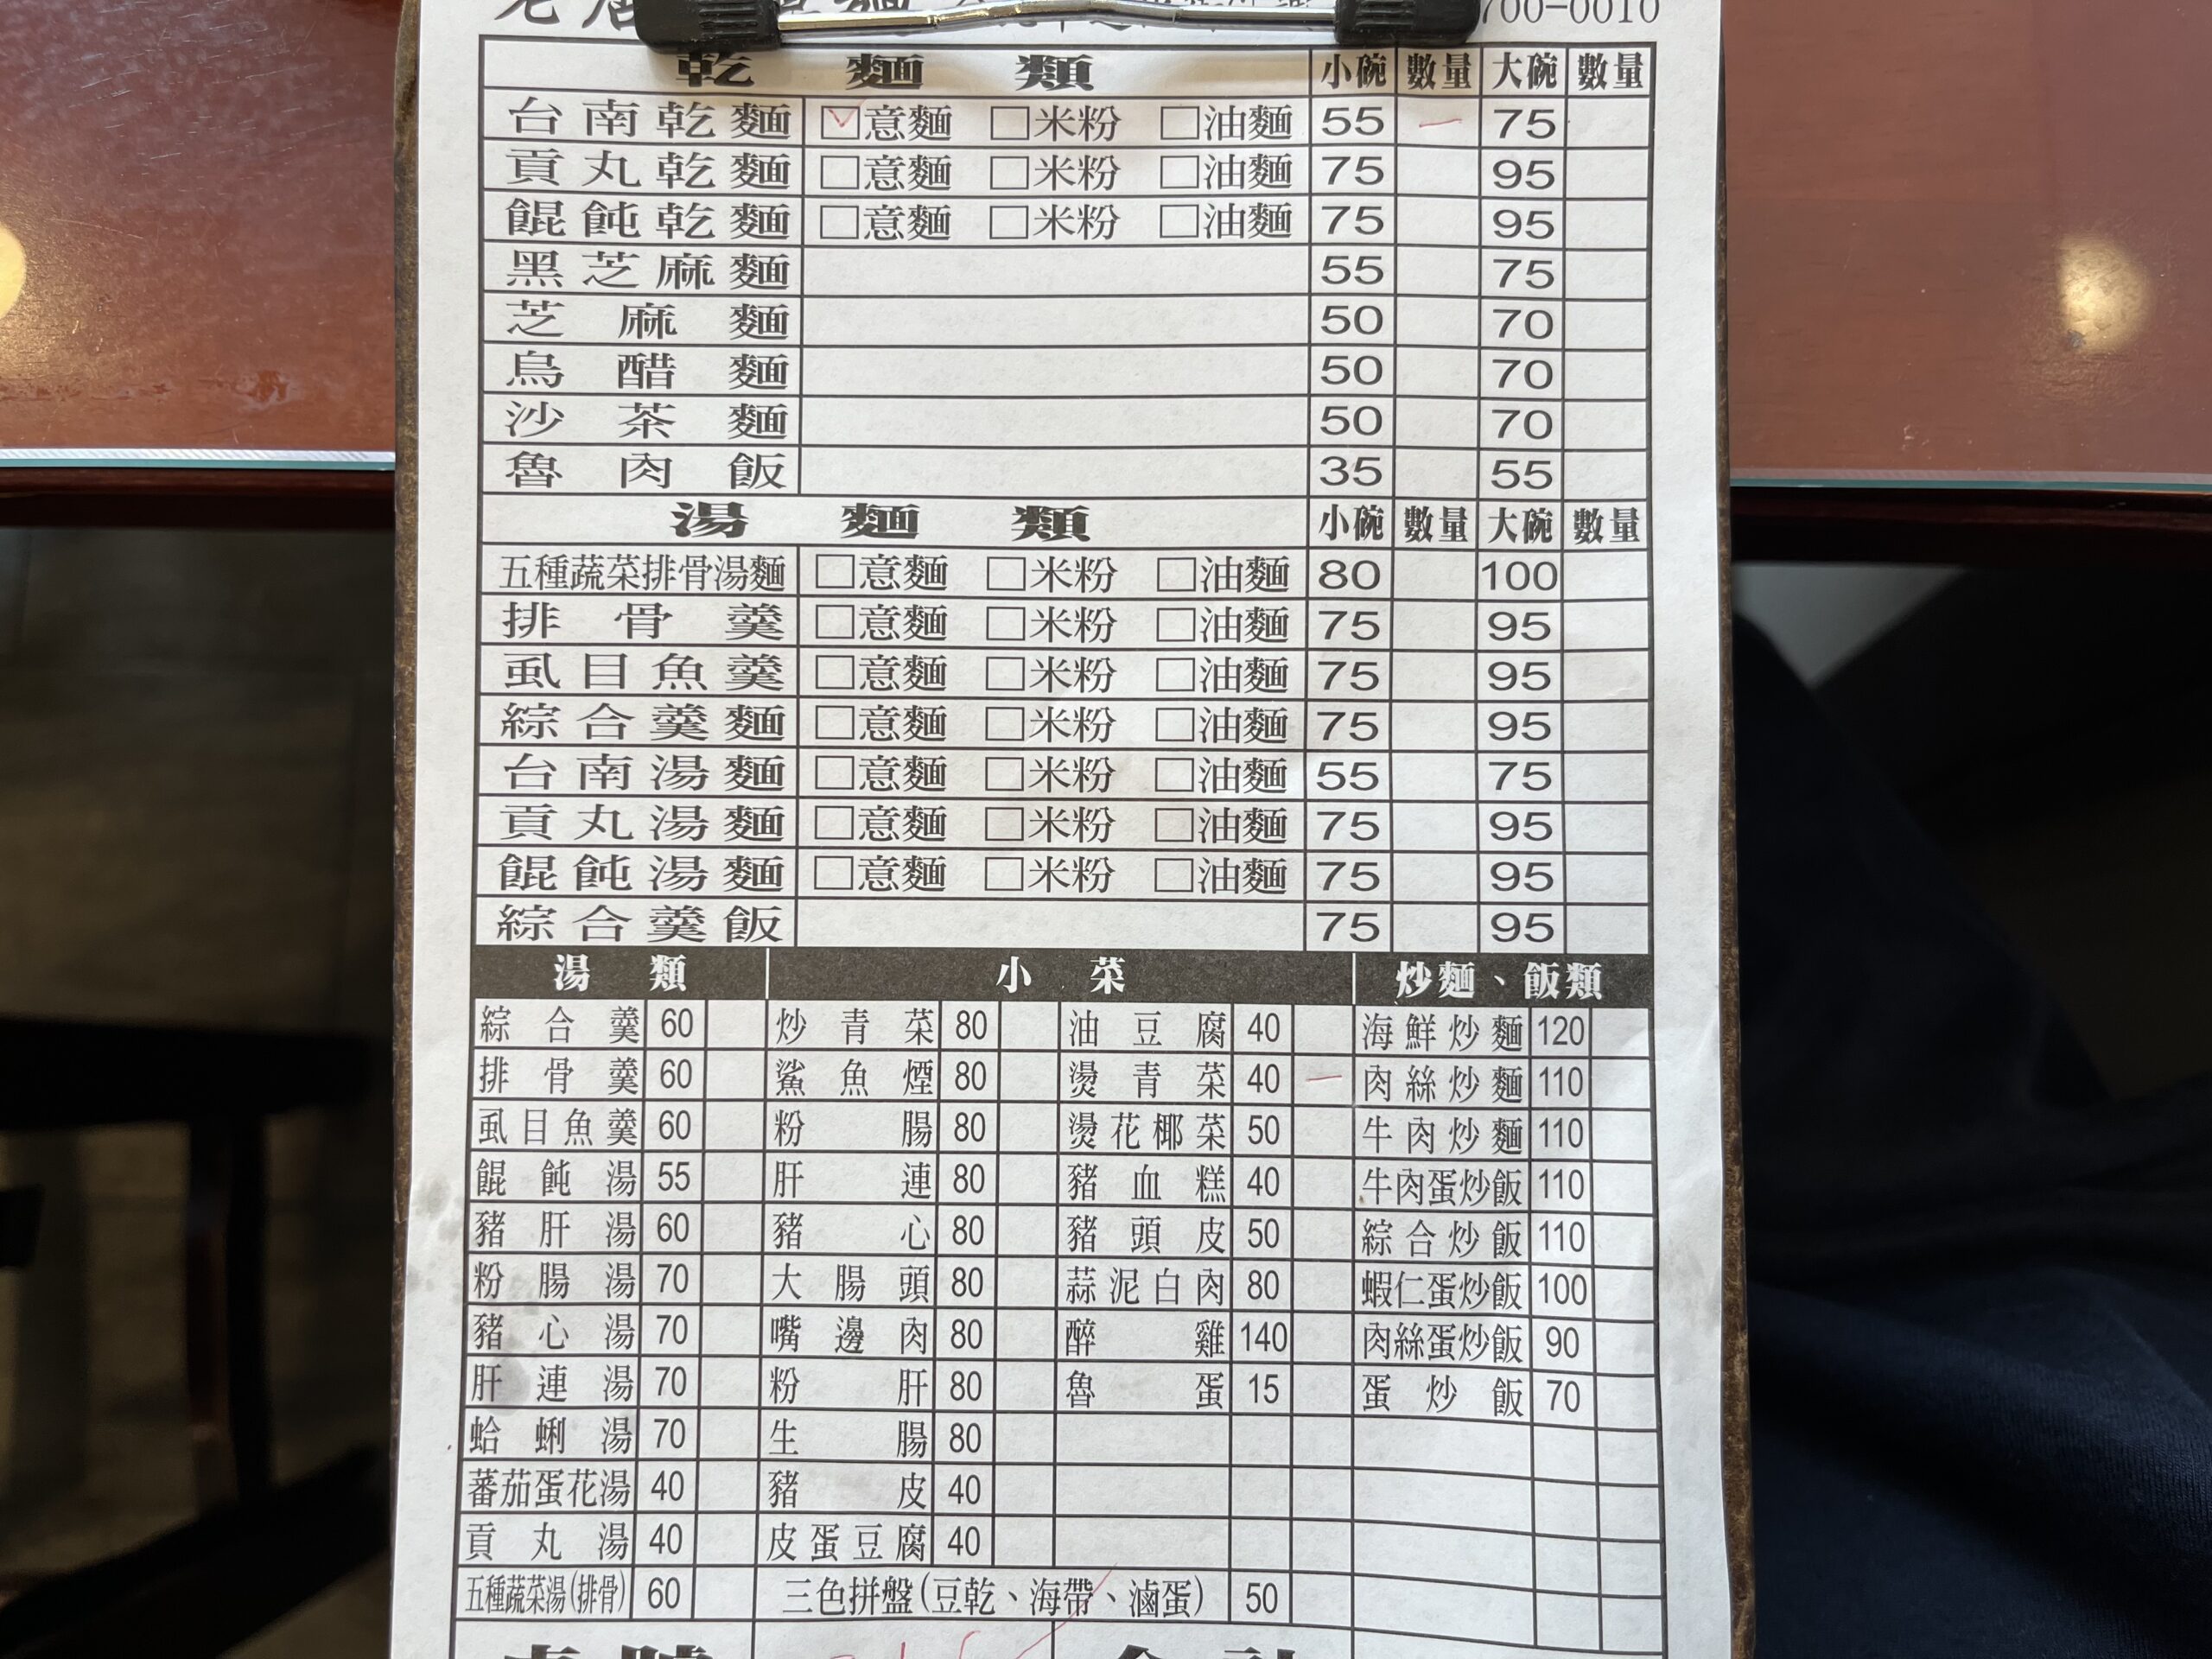 700-0010
乾麵類 小碗 數量 大碗 數量
台南乾麵 ☑意麵 □米粉 □油麵 55 一 75
貢丸乾麵 □意麵 □米粉 □油麵 75 95
餛飩乾麵 □意麵 □米粉 □油麵 75 95
黑芝麻麵 55 75
芝麻麵 50 70
烏醋麵 50 70
沙茶麵 50 70
魯肉飯 35 55
湯麵類 小碗 數量 大碗 數量
五種蔬菜排骨湯麵 □意麵 □米粉 □油麵 80 100
排骨羹 □意麵 □米粉 □油麵 75 95
虱目魚羹 □意麵 □米粉 □油麵 75 95
綜合羹麵 □意麵 □米粉 □油麵 75 95
台南湯麵 □意麵 □米粉 □油麵 55 75
貢丸湯麵 □意麵 □米粉 □油麵 75 95
餛飩湯麵 □意麵 □米粉 □油麵 75 95
綜合羹飯 75 95
湯類 小菜 炒麵、飯類
綜合羹 60 炒青菜 80 油豆腐 40 海鮮炒麵 120
排骨羹 60 鯊魚煙 80 燙青菜 40 一 肉絲炒麵 110
虱目魚羹 60 粉腸 80 燙花椰菜 50 牛肉炒麵 110
餛飩湯 55 肝連 80 豬血糕 40 牛肉蛋炒飯 110
豬肝湯 60 豬心 80 豬頭皮 50 綜合炒飯 110
粉腸湯 70 大腸頭 80 蒜泥白肉 80 蝦仁蛋炒飯 100
豬心湯 70 嘴邊肉 80 醉雞 140 肉絲蛋炒飯 90
肝連湯 70 粉肝 80 魯蛋 15 蛋炒飯 70
蛤蜊湯 70 生腸 80
蕃茄蛋花湯 40 豬皮 40
貢丸湯 40 皮蛋豆腐 40
五種蔬菜湯(排骨) 60 三色拼盤(豆乾、海帶、滷蛋) 50